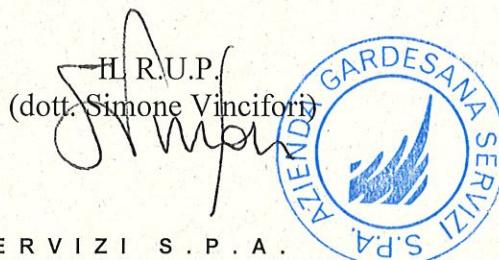 IL R.U.P.
(dott. Simone Vincifori)
AZIENDA GARDESANA SERVIZI S.P.A.
ERVIZI S.P.A.